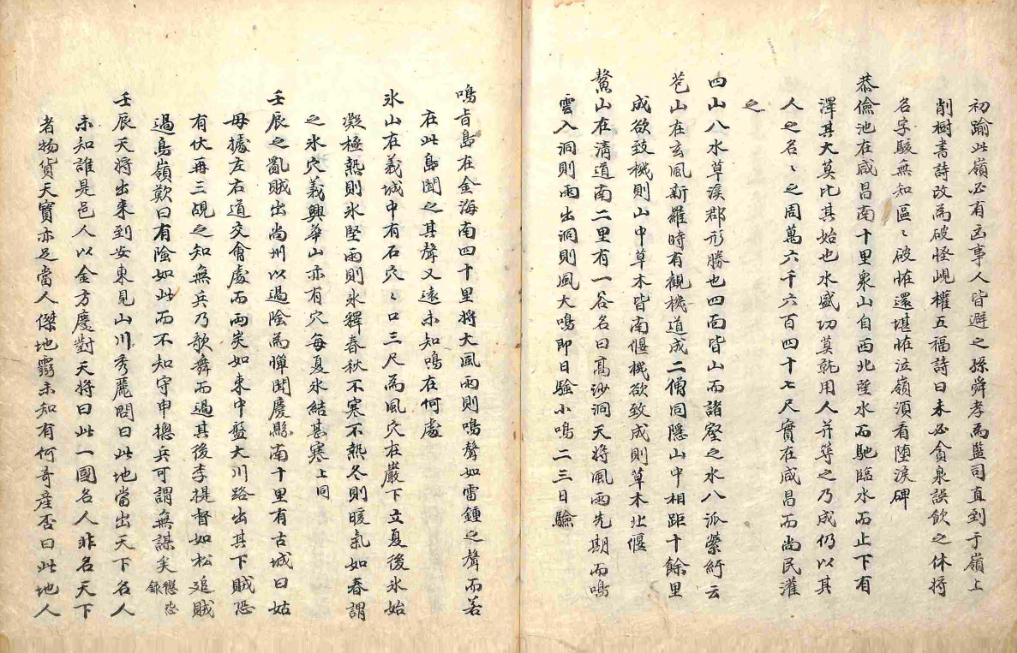 初踰此嶺必有凶事人皆避之孫舜孝爲監司直到于嶺上
削樹書詩改爲破怪峴權五福詩曰未必貪泉誤飮之休將
名字駭無知區〻破怪還堪怪泣嶺須看墮淚碑
恭儉池在咸昌南十里衆山自西北望水而馳臨水而止下有
澤其大莫比其始也水盛功莫就用人幷築之乃成仍以其
人之名〻之周萬六千六百四十七尺實在咸昌而尙民灌
之
四山八水草溪郡形勝也四面皆山而諸壑之水八派縈紆云
苞山在玄風新羅時有觀機道成二僧同隱山中相距十餘里
成欲致機則山中草木皆南偃機欲致成則草木北偃
鰲山在淸道南二里有一谷名曰髙沙洞天將風雨先期而鳴
雲入洞則雨出洞則風大鳴即日驗小鳴二三日驗
鳴旨島在金海南四十里將大風雨則鳴聲如雷鍾之聲而若
在此島聞之其聲又遠未知鳴在何處
氷山在義城中有石穴〻口三尺爲風穴在巖下立夏後氷始
凝極熱則氷堅雨則氷釋春秋不寒不熱冬則暖氣如春謂
之氷穴義興華山亦有穴每夏氷結甚寒上同
壬辰之亂賊出尙州以過險爲憚聞慶縣南十里有古城曰姑
母據左右道交會處而兩峽如束中盤大川路出其下賊恐
有伏再三覘之知無兵乃歌舞而過其後李提督如松追賊
過鳥嶺歎曰有險如此而不知守申摠兵可謂無謀矣懲毖錄
壬辰天將出來到安東見山川秀麗問曰此地當出天下名人
未知誰是邑人以金方慶對天將曰此一國名人非名天下
者物貨天寶亦足當人傑地靈未知有何奇産否曰此地人